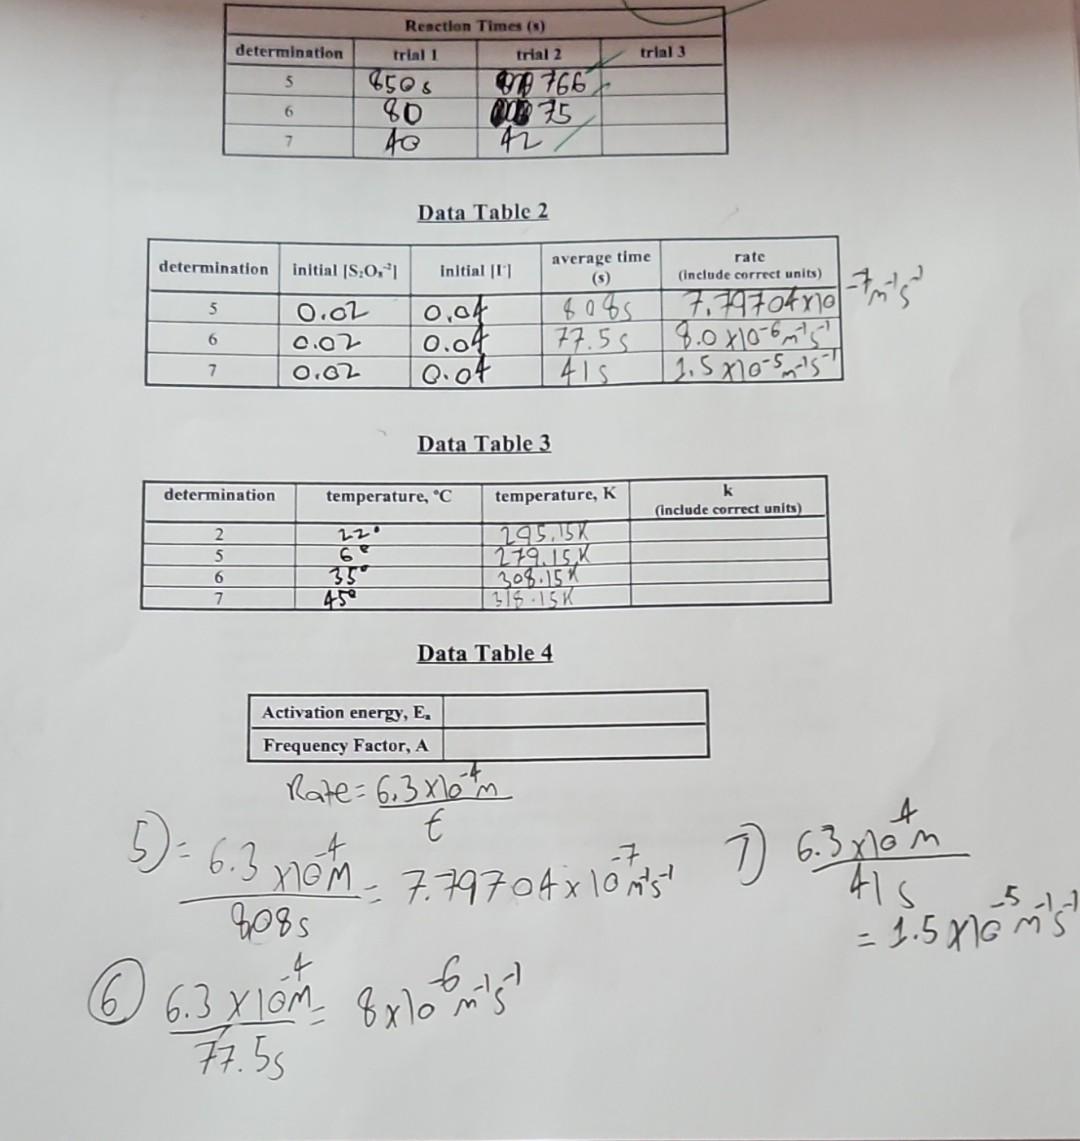 Reaction Times (s)
determination trial 1 trial 2 trial 3
5 850s 766
6 80 75
7 40 42
Data Table 2
determination initial [S₂O₈⁻²] initial [I⁻] average time (s) rate (include correct units)
5 0.02 0.04 808s 7.79704x10⁻⁷m⁻¹s⁻¹
6 0.02 0.04 77.5s 8.0x10⁻⁶m⁻¹s⁻¹
7 0.02 0.04 41s 1.5x10⁻⁵m⁻¹s⁻¹
Data Table 3
determination temperature, °C temperature, K k (include correct units)
2 22° 295.15K
5 6° 279.15K
6 35° 308.15K
7 45° 318.15K
Data Table 4
Activation energy, Eₐ
Frequency Factor, A
Rate = 6.3x10⁻⁴m
t
5) = 6.3x10⁻⁴M = 7.79704x10⁻⁷m⁻¹s⁻¹
808s
7) 6.3x10⁻⁴m
41s
= 1.5x10⁻⁵m⁻¹s⁻¹
6 6.3x10⁻⁴M = 8x10⁻⁶m⁻¹s⁻¹
77.5s